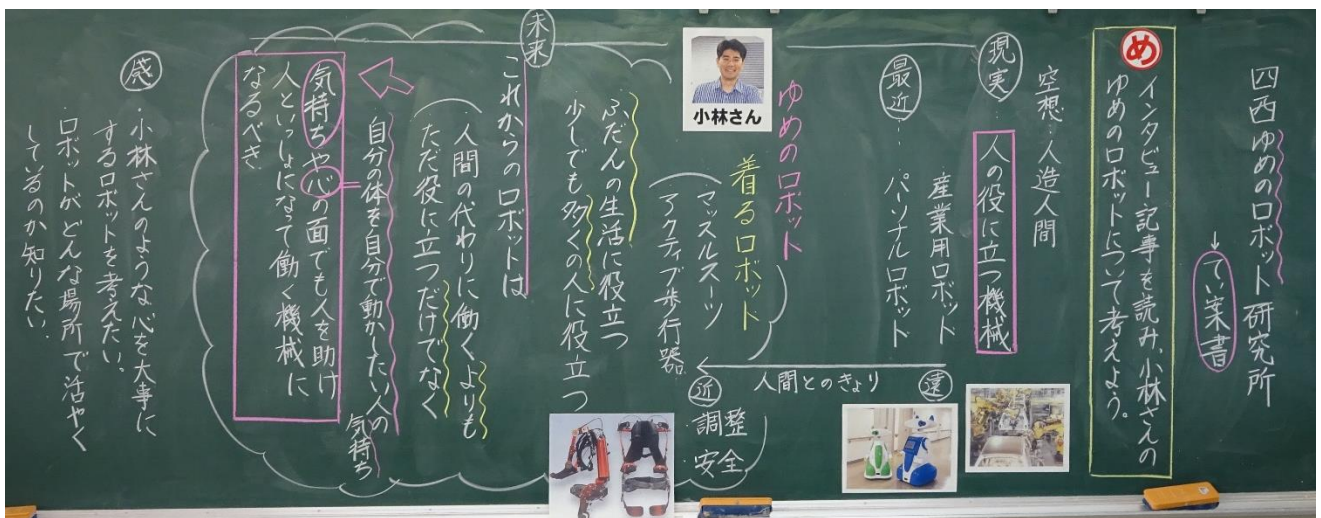 四西ゆめのロボット研究所
↓
てい案書
め
インタビュー記事を読み、小林さんの
ゆめのロボットについて考えよう。
空想…人造人間
現実…人の役に立つ機械
産業用ロボット
最近…パーソナルロボット
遠
人間とのきょり
近
調整
安全
ゆめのロボット
小林さん
着るロボット
マッスルスーツ
アクティブ歩行器
ふだんの生活に役立つ
少しでも多くの人に役立つ
未来
これからのロボットは
人間の代わりに働くよりも
ただ役に立つだけでなく
自分の体を自分で動かしたい人の
気持ち
気持ちや心の面でも人を助け
人といっしょになって働く機械に
なるべき
感
・小林さんのような心を大事に
するロボットを考えたい。
・ロボットがどんな場所で活やく
しているのか知りたい。